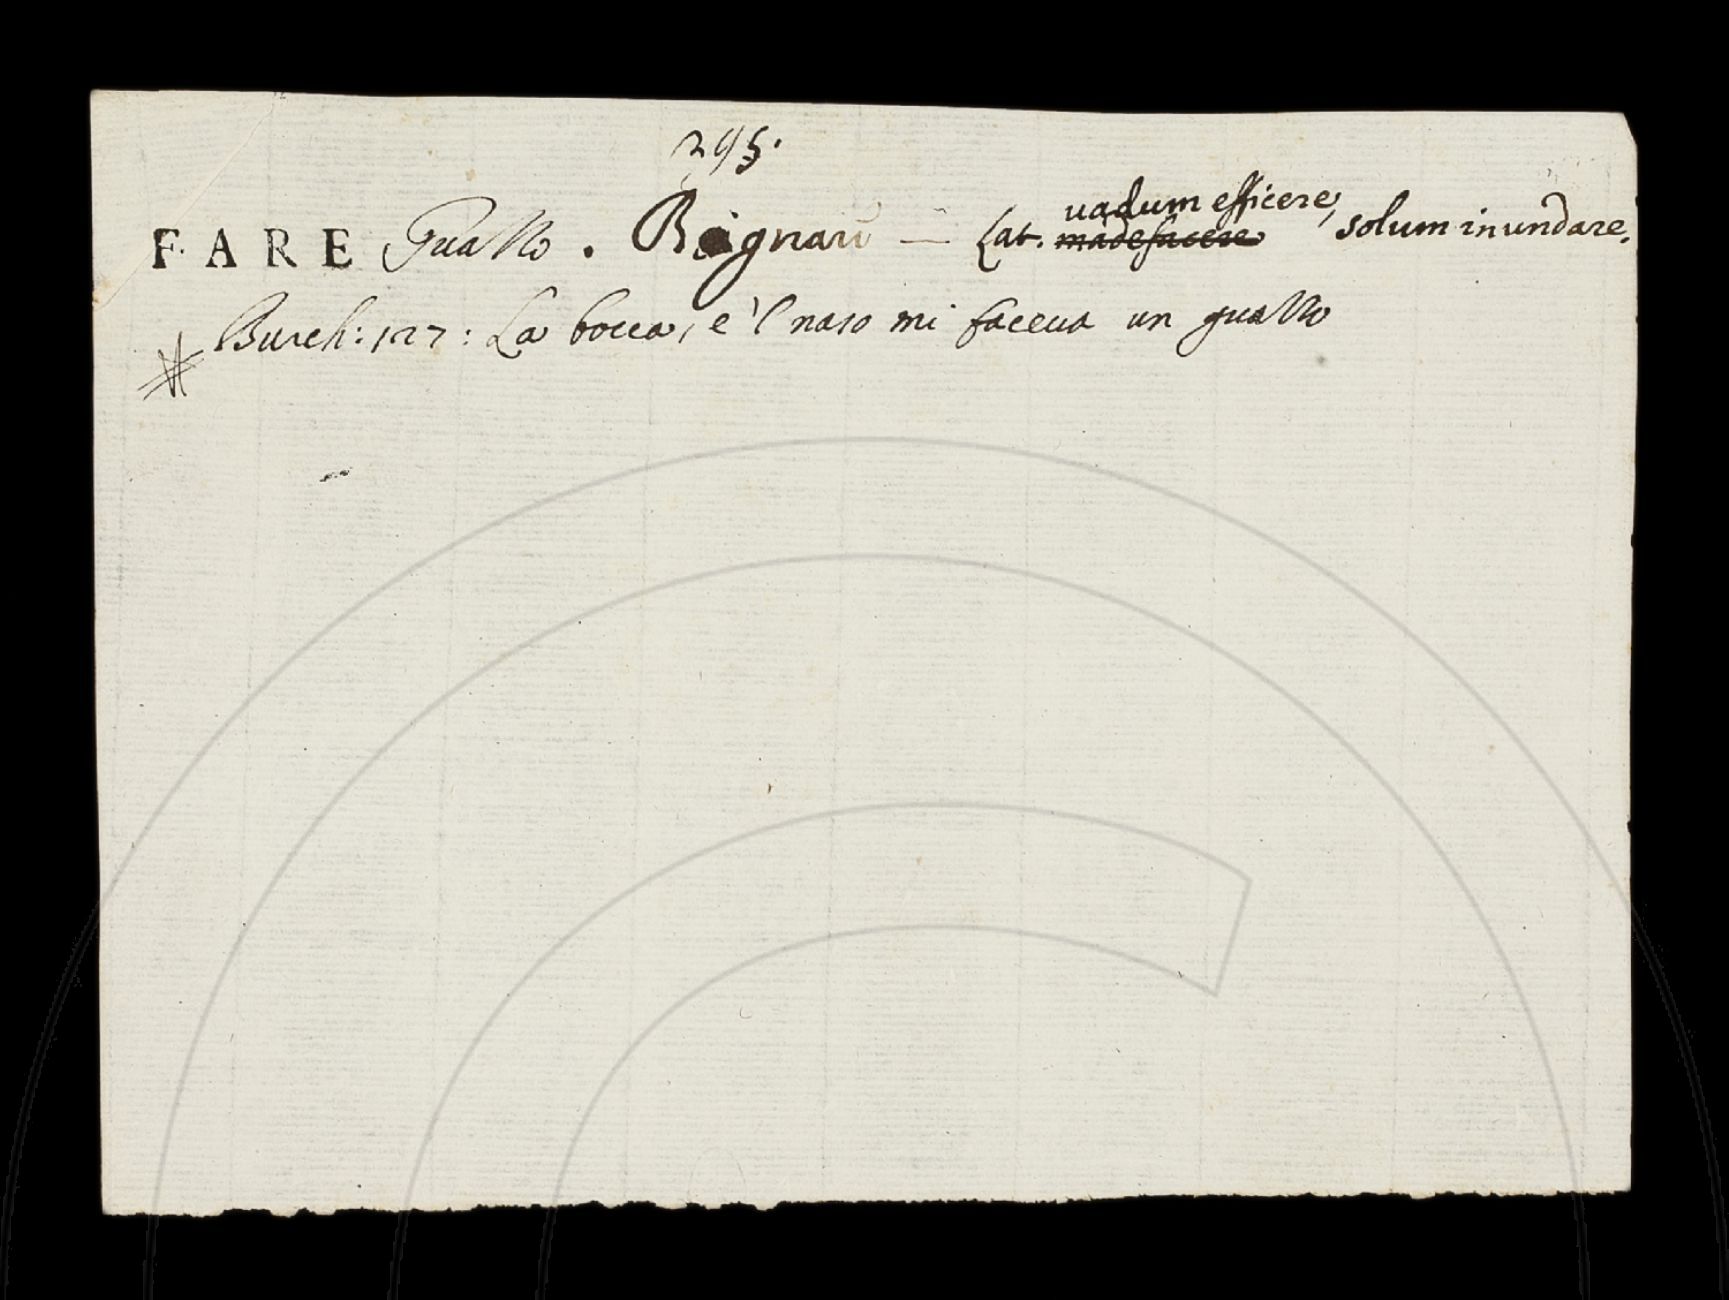 295.
uadum efficere,
FARE Guazzo. Bagnare — Lat. madefacere solum inundare.
Burch: 127: La bocca, e 'l naso mi faceua un guazzo